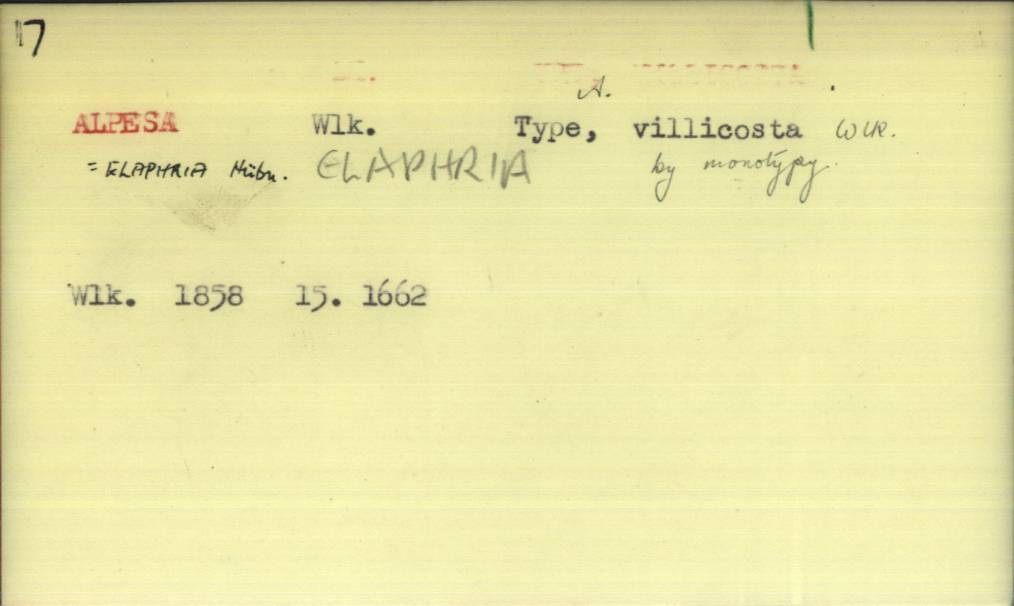 17
A.
ALPESA Wlk. Type, villicosta WLK.
= ELAPHRIA Hübn. ELAPHRIA by monotypy.
Wlk. 1858 15. 1662